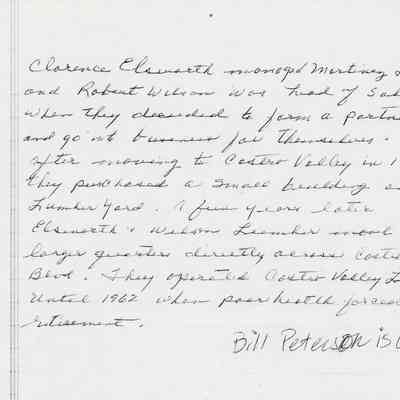 Clarence Elsworth managed Martinez
and Robert Wilson was head of Sa
when they decided to form a partne
and go nt business for themselves.
After moving to Castro Valley in 1
they purchased a small building a
Lumber Yard. A few years later
Elsworth & Wilson Lumber moved
larger quarters directly across Castro
Blvd. They operated Castro Valley Lu
Until 1962 when poor health forced
retirement.
Bill Peterson is